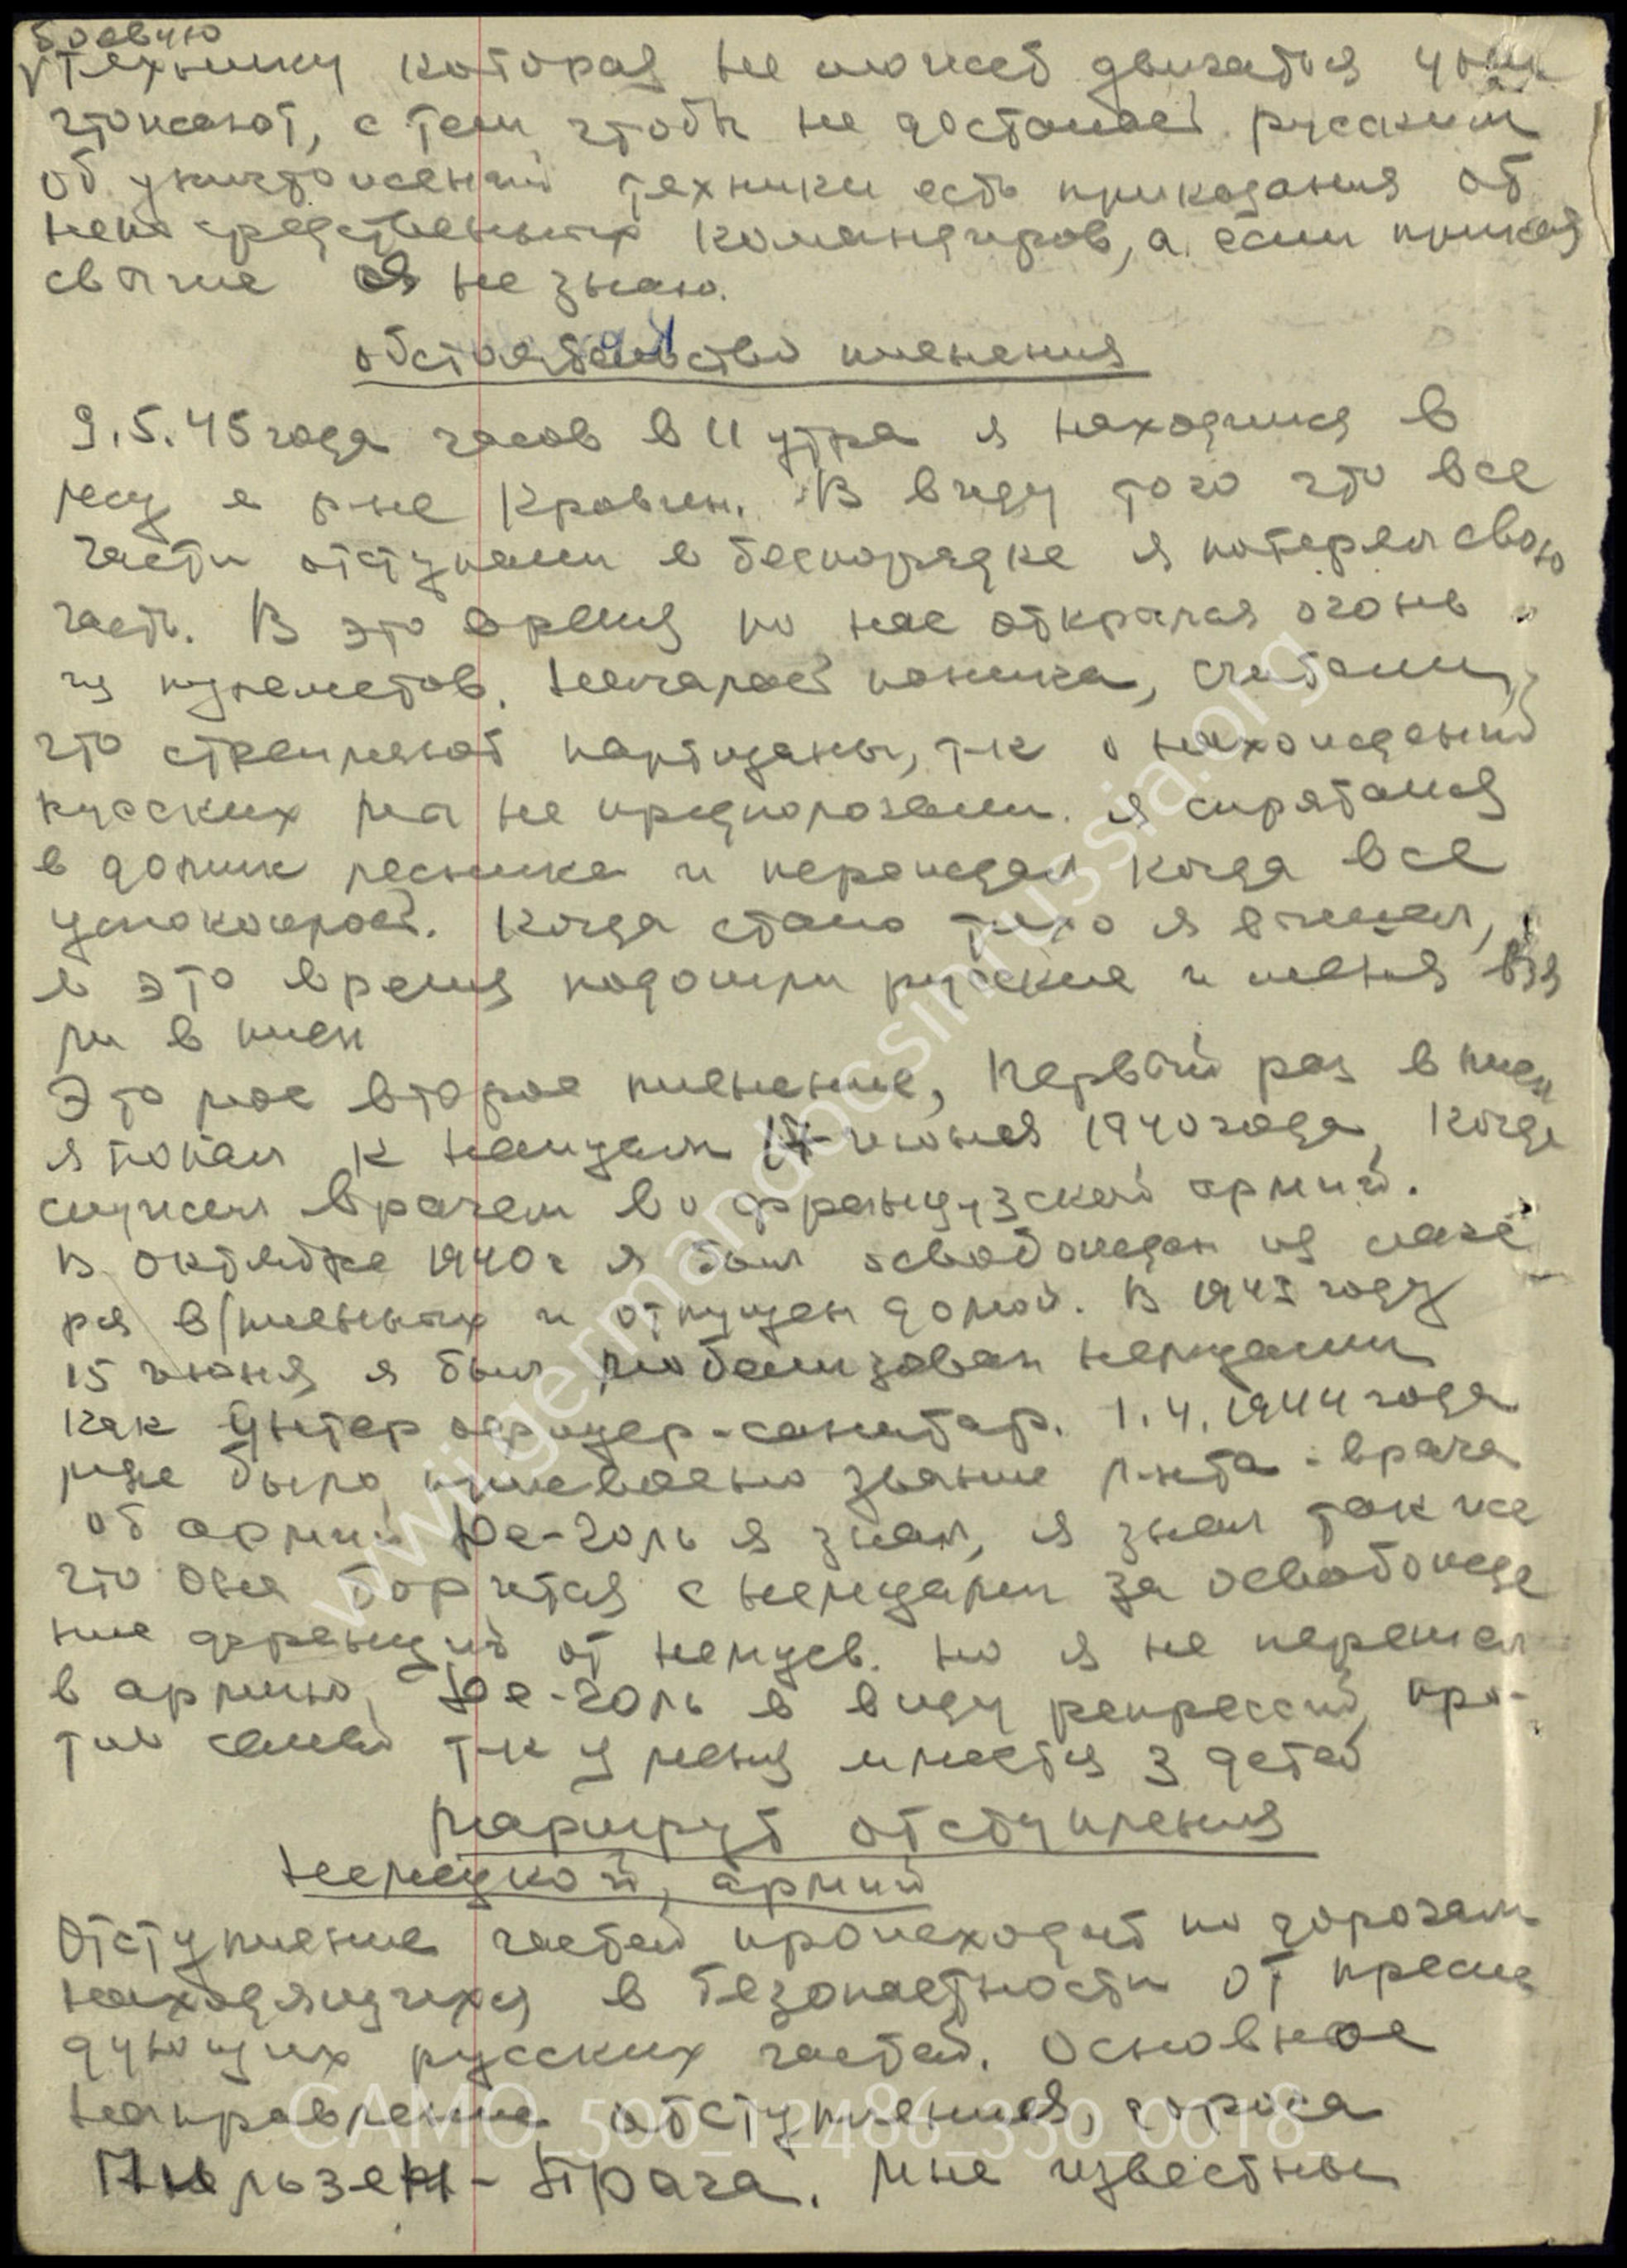 боевую
технику которая не может двигатся уни
чтожают, с тем чтобы не досталась русским
об уничтожений техники есть приказания от
непосредственных командиров, а если приказ
свыше я не знаю.
обстоятельство пленения
9.5.45 года часов в 11 утра я находился в
лесу в р-не Кровин. В виду того что все
части отступали в беспорядке я потерял свою
часть. В это время по нас открылся огонь
из пулеметов. Началась паника, считали,
что стреляют партизаны, т-к о нахождений
русских мы не предпологали. я спрятался
в домик лесника и переждал когда все
успокоилось. Когда стало тихо я вышел,
в это время подошли русские и меня взя
ли в плен
Это мое второе пленение, первый раз в плен
я попал к немцам июня 1940 года, когда
служил врачем во французской армий.
В октябре 1940 г я был освобожден из лаге
ря в/пленных и отпущен домой. В 1943 году
15 июня я был мобилизован немцами
как Унтер офицер-санитар. 1.4.1944 года
мне было присвоено звание л-нта-врача
об армий Де-Голь я знал, я знал так же
что она борится с немцами за освобожде
ние франций от немцев. но я не перешел
в армию Де-Голь в виду репрессий про-
тив семьи т-к у меня имеется 3 детей
Маршрут отступления
немецкой армий
Отступление частей происходит по дорогам
находящихся в безопастности от пресле
дующих русских частей. Основное
направление отступления, дорога
Пильзен-Прага. Мне известны
www.germandocsinrussia.org
CAMO_500_12486_330_0018_